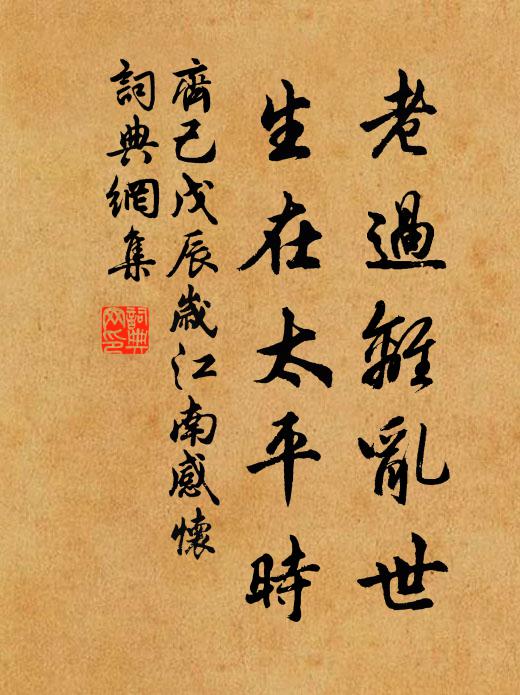 老過離亂世
生在太平時
齊己戊辰歲江南感懷
詞典網集
詞典
网印